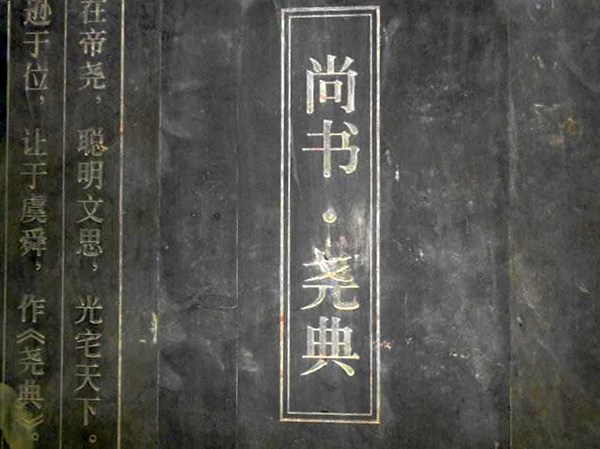 尚书·尧典
在帝尧，聪明文思，光宅天下。
逊于位，让于虞舜，作《尧典》。